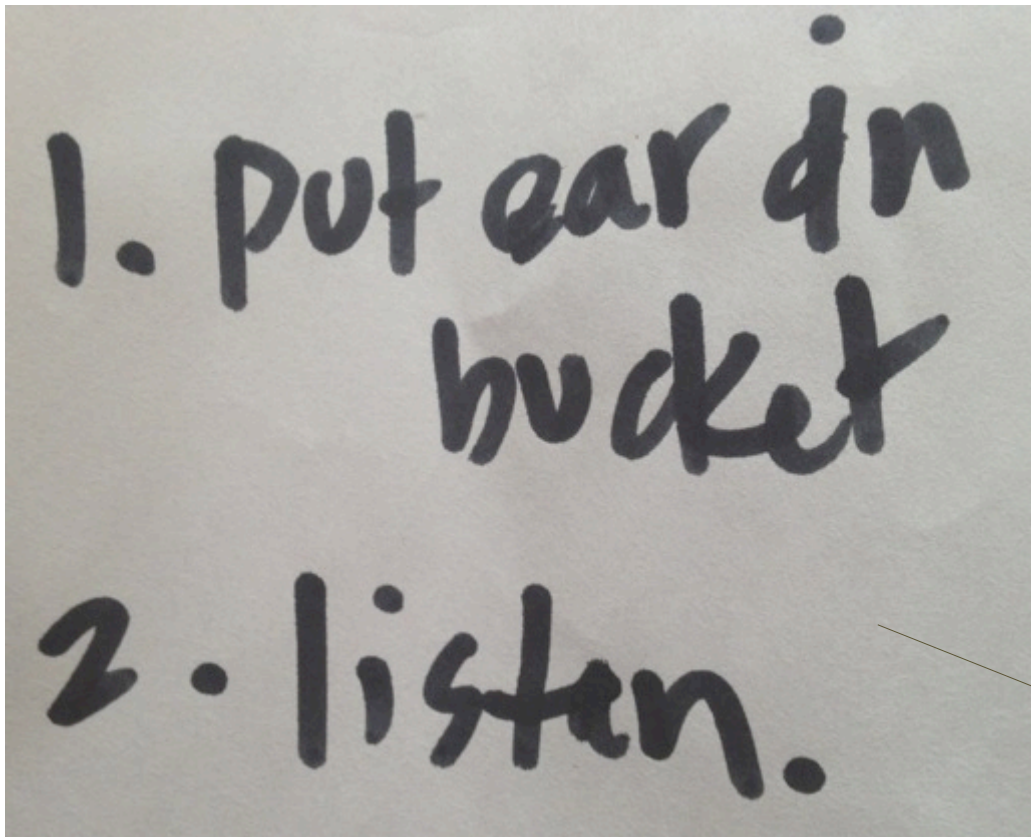 1. put ear in
bucket
2. listen.